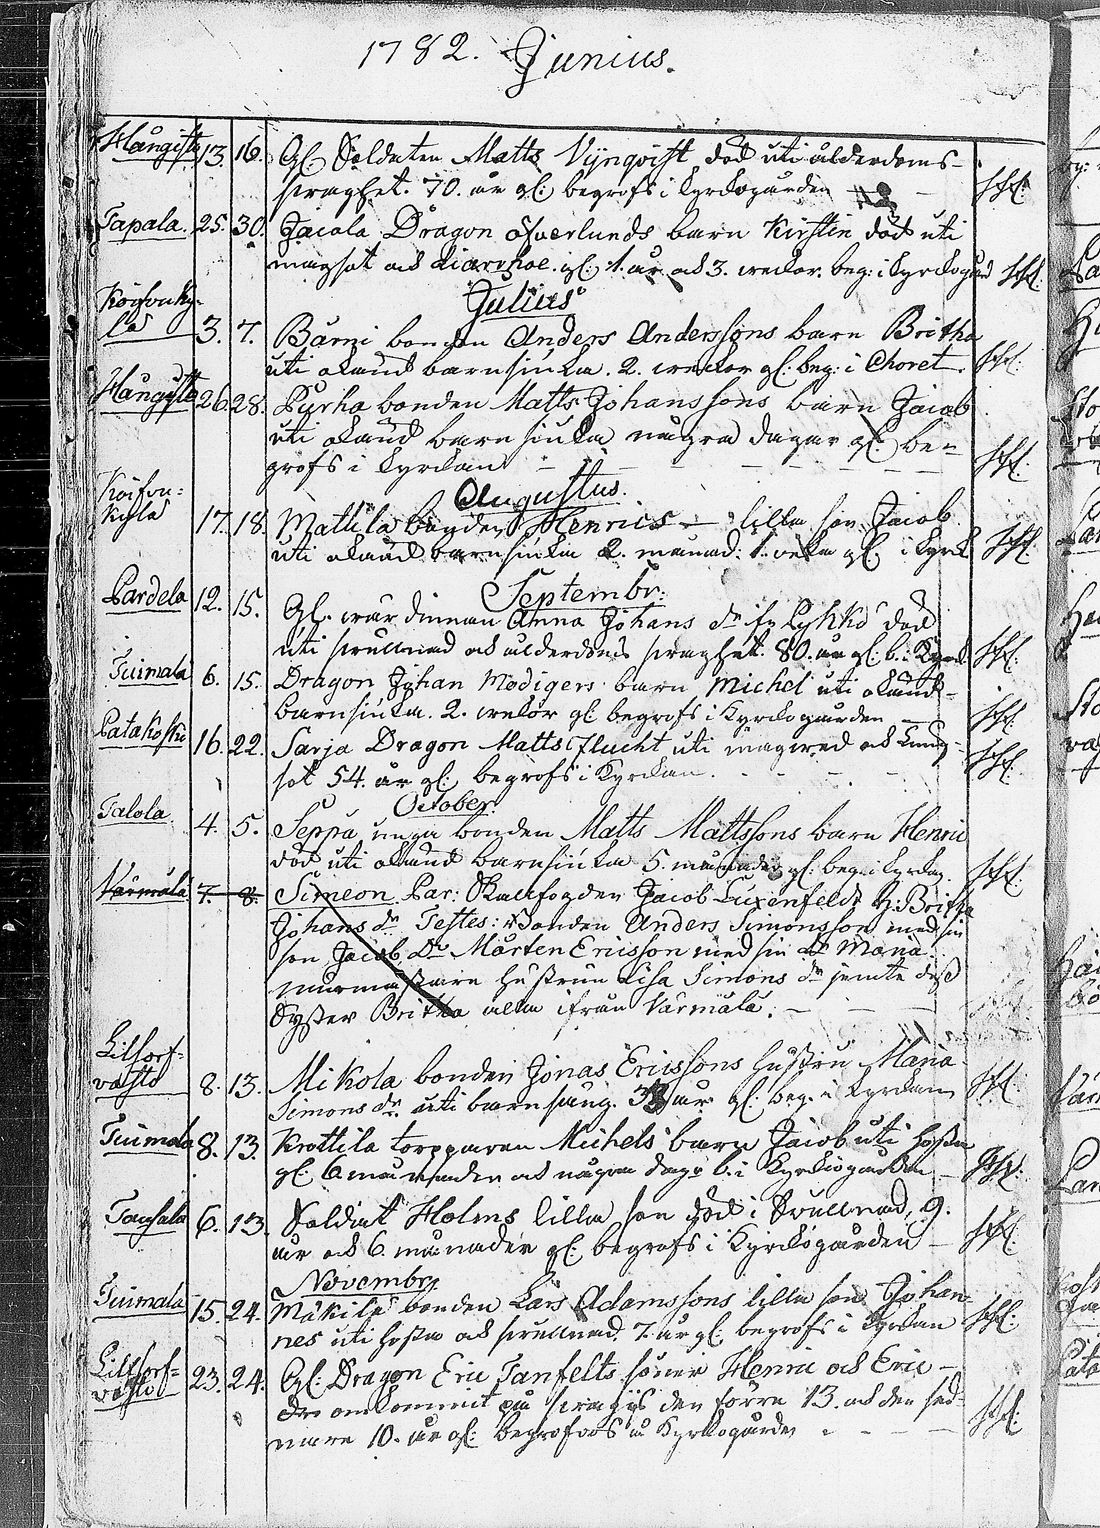 1782. Junius.
Hångisto 13. 16. Gl. Soldaten Matts Nÿnqvist död uti ålderdoms-
svaghet. 70. år gl: begrofs i kyrkogården
Tapala. 25. 30. Jacala Dragon Österlunds barn Kirstin död uti
magsot och diarrhoe. gl: 1. år och 3. weckor. beg: i kyrkogård
Julius
Koifvuky-
lä 3. 7. Bärni bonden Anders Anderssons barn Britha
uti okänd barnsjuka. 2. weckor gl: beg: i Choret.
Hångisto 26. 28. Purha bonden Matts Johanssons barn Jacob
uti okänd barnsjuka några dagar gl. be-
grofs i kyrkan
Augustus.
Koifvu-
kylä 17. 18. Mattila bonden Henrics lilla son Jacob
uti okänd barnsjuka 2. månad: 1. veka gl. i kyrk
Septembr:
Pardela 12. 15. Gl. Anna Johans dr död
uti och ålderdoms svaghet. 80. år gl: b. i
Tuimala 6. 15. Dragon Johan Modigers barn Michel uti okänd
barnsjuka. 2. weckor gl: begrofs i kyrkogården
Patakoski 16. 22. Sarja Dragon Matts Flucht uti och lung-
sot 54. år gl. begrofs i kyrkan.
October.
Talola 4. 5. Seppä unga bonden Matts Mattssons barn Henric
död uti okänd barnsjuka 5. månader gl. beg. i kyrkog.
Värmälä 7. 8. Simeon Par: Skallfogden Jacob Luxenfeldt H: Britha
Johans dr Testes: Bonden Anders Simonsson med sin
son Jacob, Do Mårten Ericsson med sin Maria
hustrun Lisa Simons dr jemte dess
Syster Britha alla ifrån Värmälä.
Litsorf-
vasto 8. 13. Mikola bonden Jonas Ericssons hustru Maria
Simons dr. uti barnsäng. år gl. beg. i kyrkan
Tuimala 8. 13. Krottila torpparen Michels barn Jacob uti hosta
gl 6 månader och några dagr b. i kyrkiogården
Tansala 6. 13. Soldat Holms lilla son död i 9.
år och 6. månader gl. begrofs i kyrkogården
Novembr.
Tuimala 15. 24. Mäkilä bonden Lars Adamssons lilla son Johan-
nes uti hosta och 7. år gl. begrofs i kyrkan
Litsorf-
vasto 23. 24. Gl: Dragon Eric Tanfelts söner Henric och Eric
omkommit på den förre 13. och den sed-
nare 10. år gl. begrofvos å kyrkogården